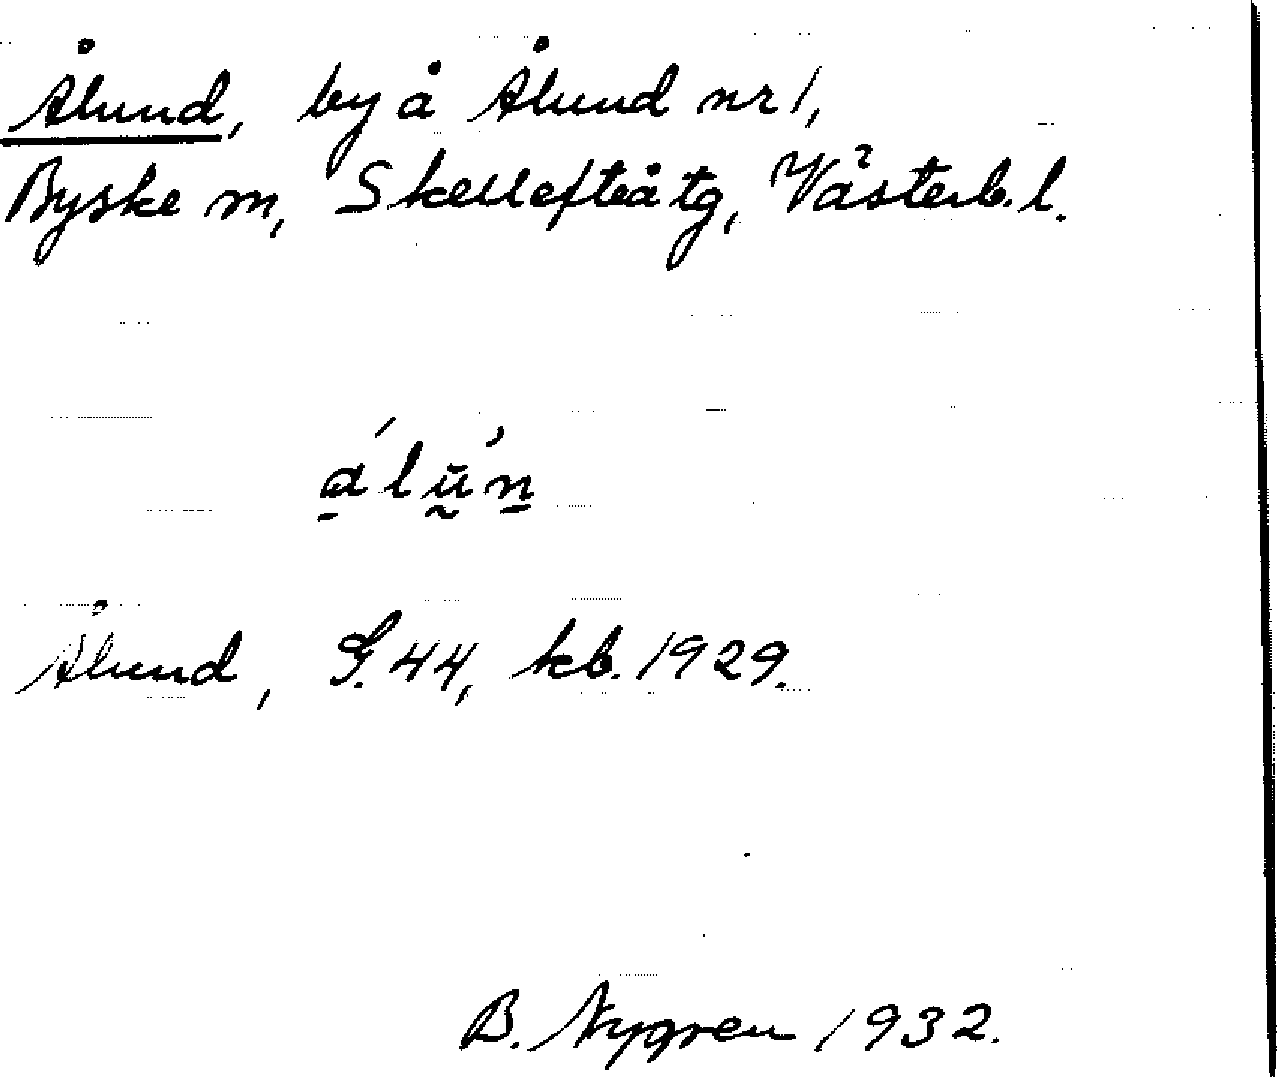 Ålund, by å Ålund nr 1,
Byske sn, Skellefteå tg, Västerb. l.
Ålund, G. 44, kb. 1929.
B. Nygren 1932.